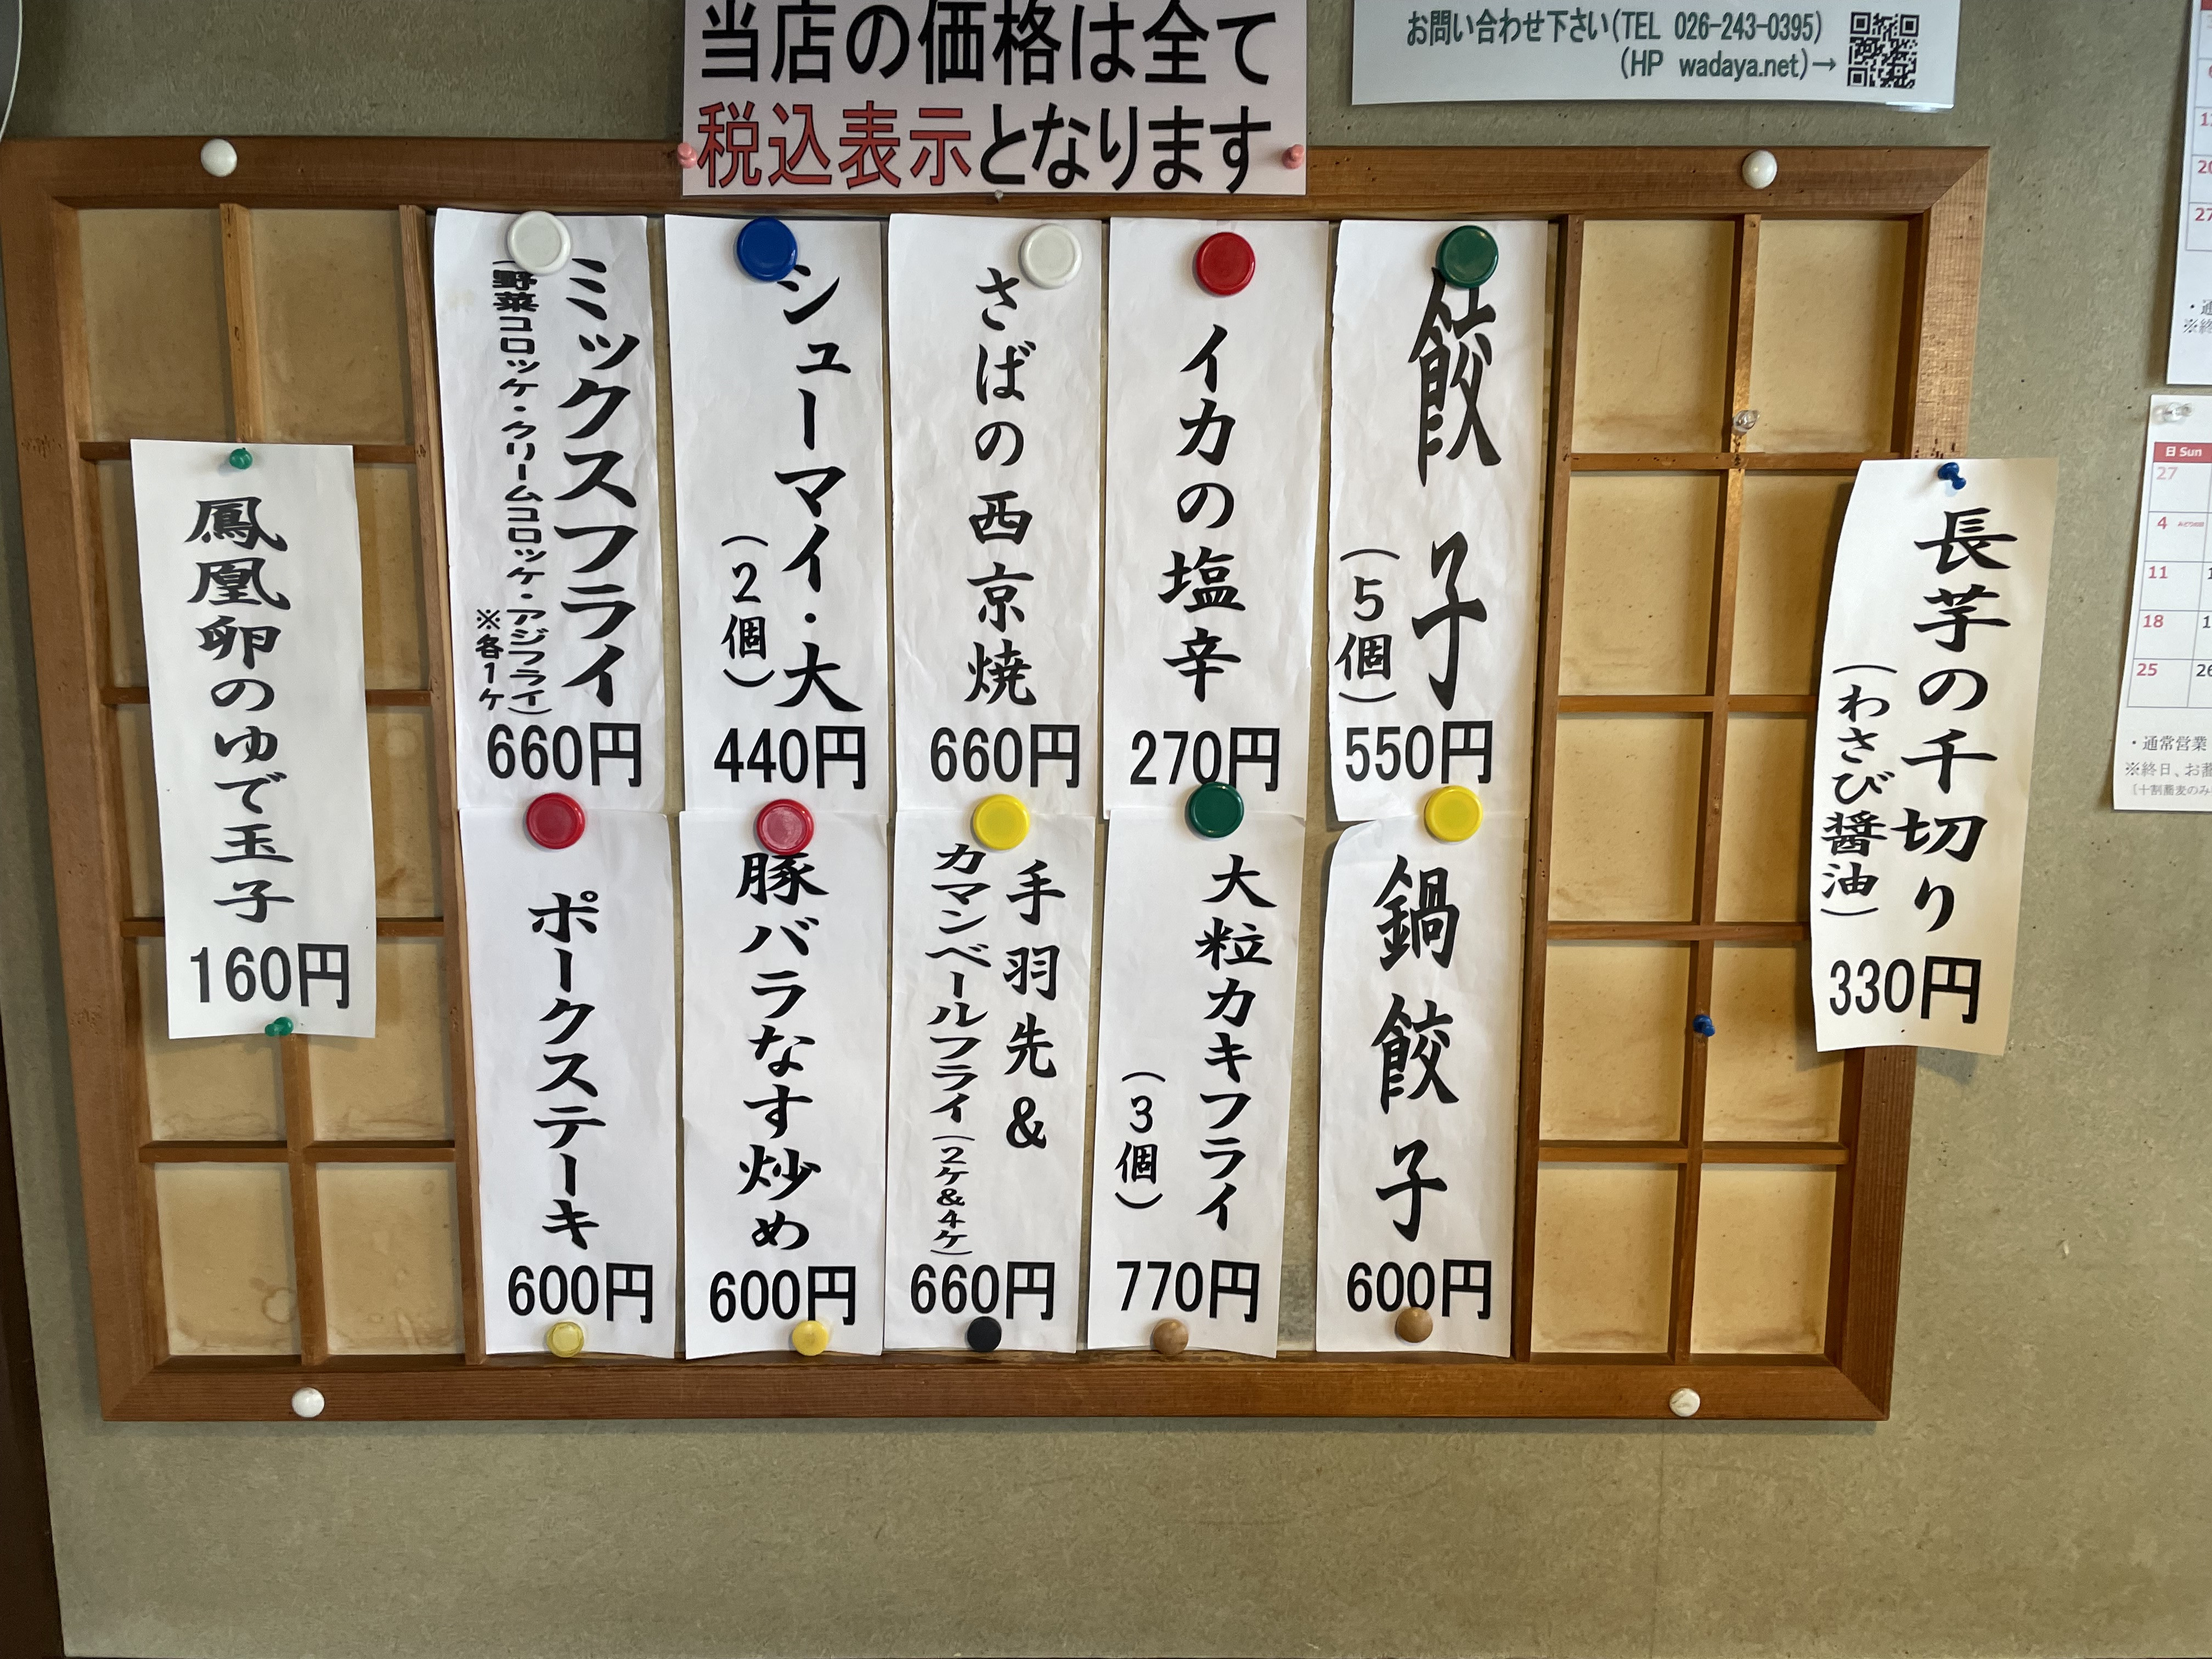 当店の価格は全て
税込表示となります
お問い合わせ下さい(TEL 026-243-0395)
(HP wadaya.net)→
長芋の千切り
(わさび醤油)
330円
餃子
(5個)
550円
イカの塩辛
270円
さばの西京焼
660円
シューマイ・大
(2個)
440円
ミックスフライ
(野菜コロッケ・クリームコロッケ・アジフライ)
※各1ケ
660円
鍋餃子
600円
大粒カキフライ
(3個)
770円
手羽先&
カマンベールフライ(2ケ&4ケ)
660円
豚バラなす炒め
600円
ポークステーキ
600円
鳳凰卵のゆで玉子
160円
日 Sun
27
4
11
18
25
・通常営業
※終日、お蕎
〔十割蕎麦のみ
20
27
・通
※終